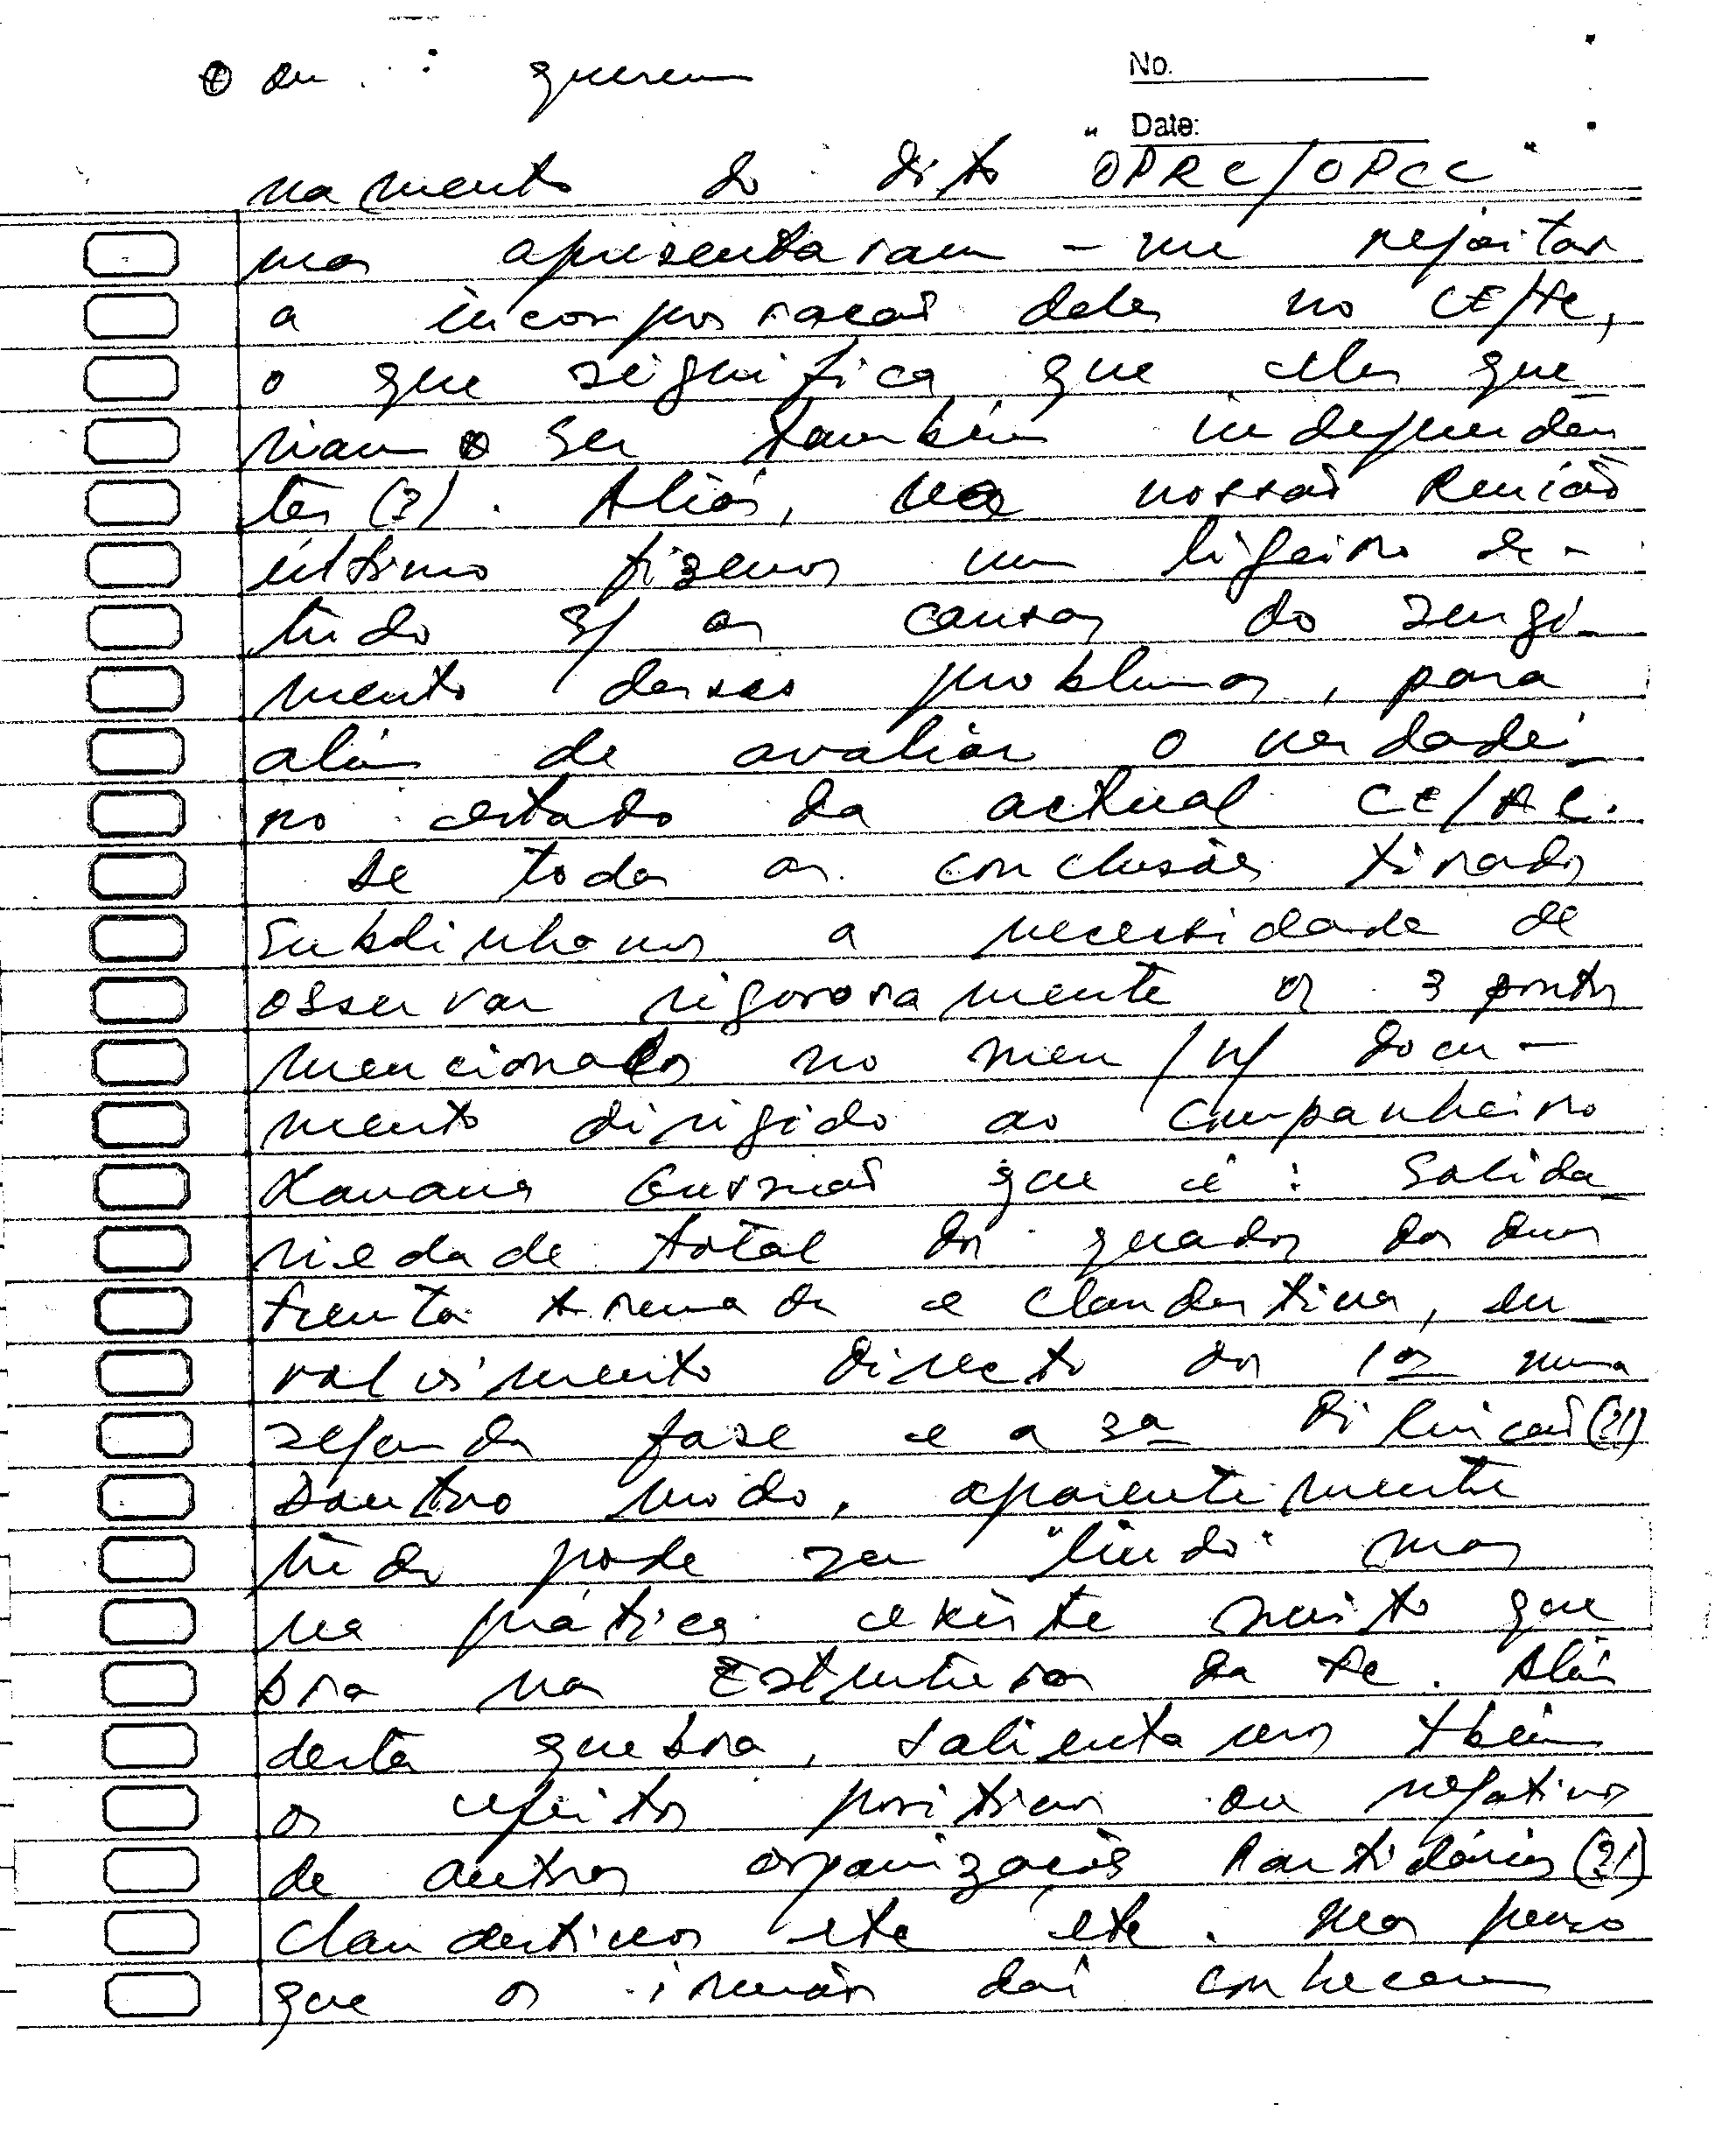 ⊕ ou : querem
No.
Date:
namento do dito "OPRC/OPCC"
mas apresentaram-me rejeitar
a incorporação deles no CE/FC,
o que significa que eles que
riam ser também independen
tes (?). Aliás, na nossa Reunião
último fizemos um ligeiro es-
tudo s/ as causas do surgi-
mento desses problemas, para
além de avaliar o verdadei
ro estado da actual CE/FC.
De todas as conclusões tiradas
sublinhamos a necessidade de
observar rigorosamente os 3 pontos
mencionados no meu/n/ docu-
mento dirigido ao Companheiro
Xanana Gusmão que é: Solida
riedade total dos quados das duas
frenta Armada e Clandestina, en
volvimento directo dos 1os numa
segunda fase e a 3a (?!)
Doutro modo, aparentemente
tudo pode ser "lindo" mas
na prática existe muito que
bra nas Estruturas da FC. Além
desta quebra, salientamos tbém
os efeitos positivos ou negativos
de outras organizações Partidárias (?!)
clandestinas etc etc. Mas penso
que os irmãos daí conhecem